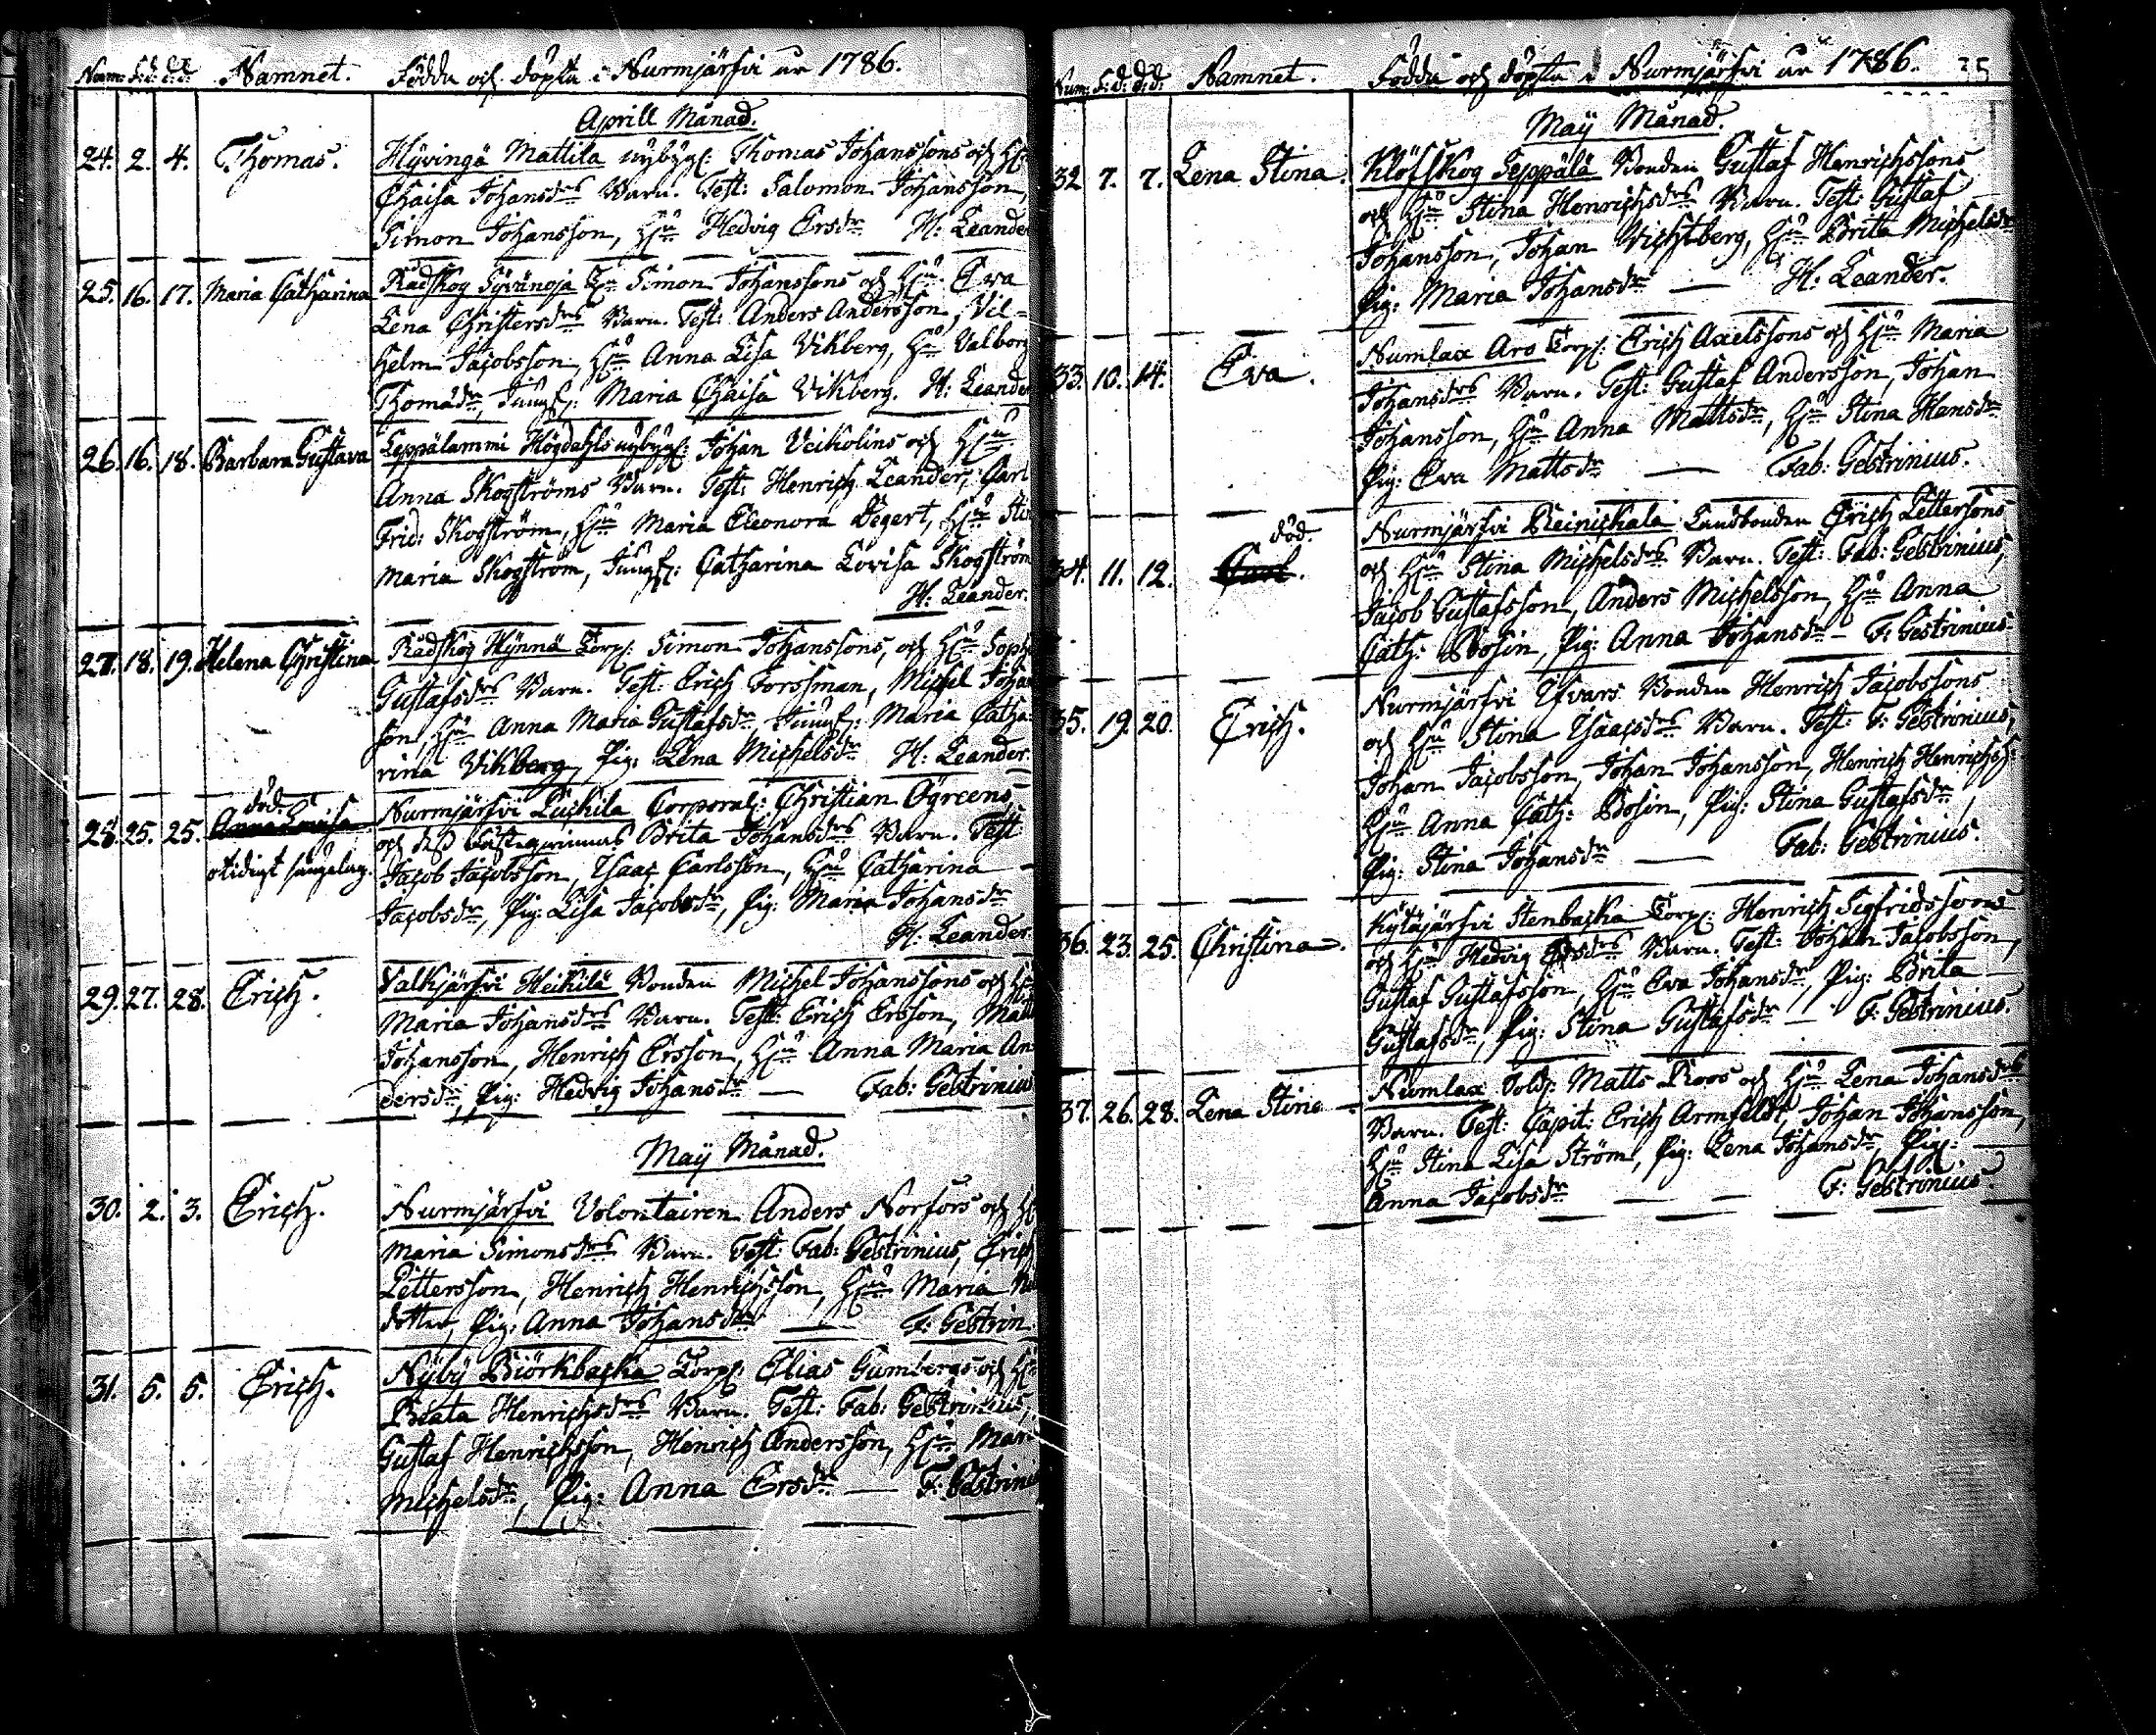 Num: f:d: d:d: Namnet. Födda och döpta i Nurmjärfvi år 1786.
Aprill Månad.
24. 2. 4. Thomas. Hyvingä Mattila nybygg: Thomas Johanssons och Hu
Chaisa Johansdrs Barn. Test: Salomon Johansson,
Simon Johansson, Hu Hedvig Ersdr H: Leander
25. 16. 17. Maria Catharina Rådskog Syvänoja Simon Johanssons och Hu Eva
Lena Christersdrs Barn. Test: Anders Andersson, Vil-
helm Jacobsson, Hu Anna Lisa Vikberg, Hu Valborg
Thomædr, Jungf: Maria Chaisa Vikberg. H: Leander
26. 16. 18. Barbara Gustava Leppälammi Högdahls nybygg: Johan Veikolins och Hu
Anna Skogströms Barn. Test: Henrich Leander, Carl
Frid: Skogström, Hu Maria Eleonora Degert, Hu Sti
Maria Skogström, Jungf: Catharina Lovisa Skogström
H: Leander.
27. 18. 19. Helena Christina Rådskog Hynnä Torp: Simon Johanssons, och Hu Soph
Gustafsdrs Barn. Test: Erich Forssman, Michel Johan
son, Hu Anna Maria Gustafsdr Jungf: Maria Catha
rina Vikberg, Pig: Lena Michelsdr H: Leander.
död.
28. 25. 25. Anna Lovisa Nurmjärfvi Luckila Corporal: Christian Ögreens
otidigt sängelag. och dess Brita Johansdrs Barn. Test:
Jacob Jacobsson, Isaac Carlsson, Hu Catharina
Jacobsdr, Pig: Lisa Jacobsdr, Pig: Maria Johansdr
H: Leander.
29. 27. 28. Erich. Valkjärfvi Heikilä Bonden Michel Johanssons och Hu
Maria Johansdrs Barn. Test: Erich Ersson, Matts
Johansson, Henrich Ersson, Hu Anna Maria An
dersdr, Pig: Hedvig Johansdr — Fab: Gestrinius
Maÿ Månad.
30. 2. 3. Erich. Nurmjärfvi Volontairen Anders Norfors och Hu
Maria Simonsdrs Barn. Test: Fab: Gestrinius, Erich
Pettersson, Henrich Henrichsson, Hu Maria
dotter, Pig: Anna Johansdr — F: Gestrin.
31. 5. 5. Erich. Nÿbÿ Biörkbacka Torp: Elias Gumbergs och Hu
Beata Henrichsdrs Barn. Test: Fab: Gestrinius,
Gustaf Henrichsson, Henrich Andersson, Hu Mar
Michelsdr, Pig: Anna Ersdr — F: Gestrini
Num: f:d: d:d: Namnet. Födda och döpta i Nurmjärfvi år 1786. 35
Maÿ Månad.
32 7. 7. Lena Stina. Klöfskog Seppälä Bonden Gustaf Henrichssons
och Hu Stina Henrichsdrs Barn. Test: Gustaf
Johansson, Johan Vichtberg, Hu Brita Michelsdr
Pig: Maria Johansdr — H: Leander.
33. 10. 14. Eva. Numlax Aro Torp: Erich Axelssons och Hu Maria
Johansdrs Barn. Test: Gustaf Andersson, Johan
Johansson, Hu Anna Mattsdr, Hu Stina Hansdr
Pig: Eva Mattsdr — Fab: Gestrinius.
död.
34. 11. 12. Carl. Nurmjärfvi Reinickala Landbonden Erich Pettersons
och Hu Stina Michelsdrs Barn. Test: Fab: Gestrinius,
Jacob Gustafsson, Anders Michelsson, Hu Anna
Cath: Bosin, Pig: Anna Johansdr — F: Gestrinius.
35. 19. 20. Erich. Nurmjärfvi Ifvars Bonden Henrich Jacobssons
och Hu Stina Isaacsdrs Barn. Test: F: Gestrinius,
Johan Jacobsson, Johan Johansson, Henrich Henrichss:
Hu Anna Cath: Bosin, Pig: Stina Gustafsdr,
Pig: Stina Johansdr — Fab: Gestrinius.
36. 23. 25. Christina. Kÿtäjärfvi Stenbacka Torp: Henrich Sigfridssons
och Hu Hedvig Ersdrs Barn. Test: Johan Jacobsson,
Gustaf Gustafsson, Hu Eva Johansdr, Pig: Brita
Gustafsdr, Pig: Stina Gustafsdr — F: Gestrinius.
37. 26. 28. Lena Stina Numlax Sold: Matts Roos och Hu Lena Johansdrs
Barn. Test: Capit: Erich Armfeldt, Johan Johansson,
Hu Stina Lisa Ström, Pig: Lena Johansdr, Pig:
Anna Jacobsdr — F: Gestrinius.